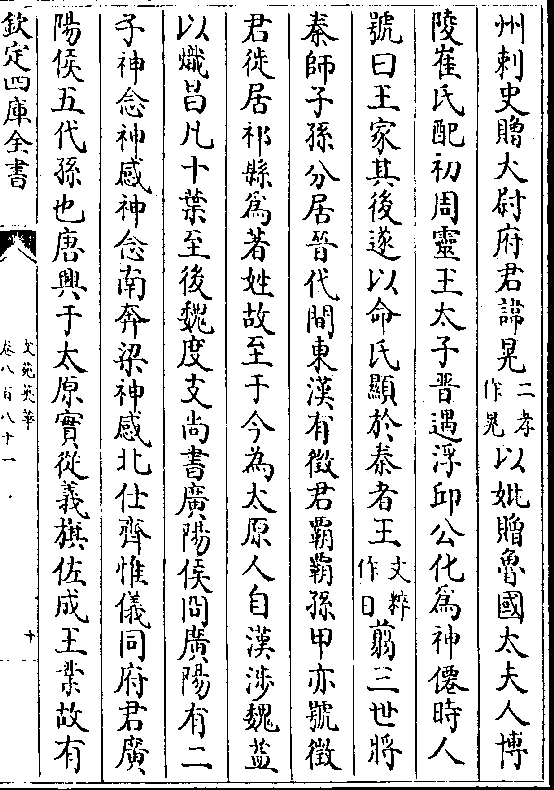 州刺史贈大尉府君諱晃二孝作晃以妣贈魯國太夫人博
陵崔氏配初周靈王太子晉遇浮邱公化爲神僊時人
號曰王家其後遂以命氏顯於秦者王文粹作曰翦三世將
秦師子孫分居晉代間東漢有徵君霸霸孫甲亦號徵
君徙居祁縣爲著姓故至于今為太原人自漢涉魏葢
以熾昌凡十葉至後魏度支尚書廣陽侯冏廣陽有二
子神念神感神念南奔梁神感北仕齊惟儀同府君廣
陽侯五代孫也唐興于太原實從義旗佐成王業故有
欽定四庫全書
文苑英華
卷八百八十一
十